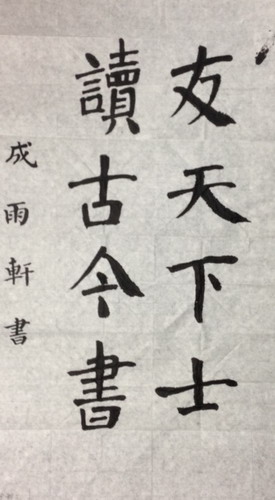 友天下士
讀古今書
成雨軒書